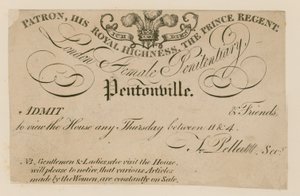 PATRON, HIS ROYAL HIGHNESS, THE PRINCE REGENT.
London Female Penitentiary
Pentonville.
ADMIT & Friends,
to view the House any Thursday between 11 & 4.
Secy
NB. Gentlemen & Ladies who visit the House,
will please to notice, that various Articles
made by the Women, are constantly on Sale.